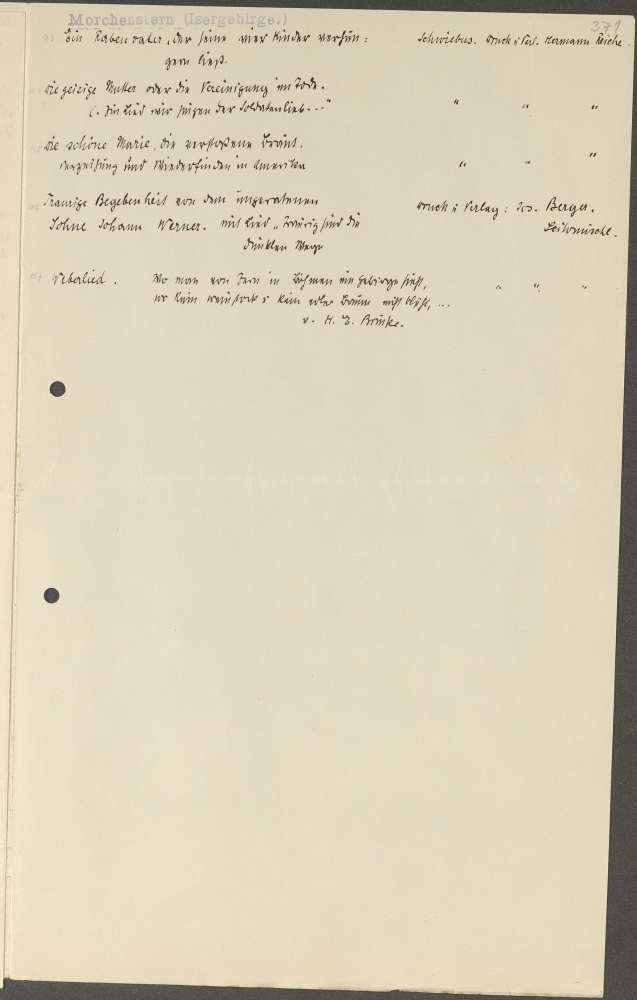 Morchenstern (Isergebirge.)
371
Ein Rabenvater, der seine vier Kinder verhun= Schwiebus. Druck u. Verl. Hermann Reiche.
gern ließ.
Die geizige Mutter oder die Vereinigung im Tode.
(. Ein Lied wir singen der Soldatenlieb - - -" " " "
Die schöne Marie, die verstoßene Braut.
Verzeihung und Wiederfinden in Amerika " " "
Traurige Begebenheit von dem ungeratenen Druck u. Verlag: Jos. Berger.
Sohne Johann Werner. mit Lied „Traurig sind die Leitomischl.
dunklen Wege
Weberlied. Wo man von fern in Böhmen ein Gebirge sieht, " " "
wo kein Weinstock u. kein edler Baum nicht blüht, ...
v. H. Brinke.